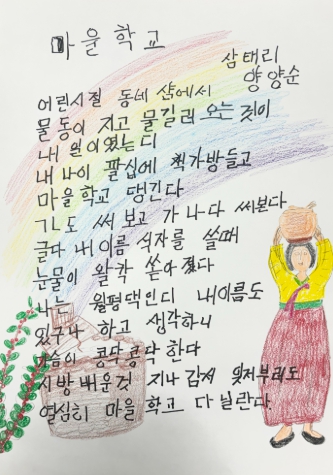 마을학교
삼태리
양양순
어린시절 동네 샴에서
물동이 지고 물길러 오는것이
내 일이였는디
내 나이 팔십에 책가방들고
마을학교 댕긴다
ㄱㄴ도 써보고 가나다 써본다
글다 내이름 석자를 쓸때
눈물이 왈칵 쏟아졌다
나는 월평댁인디 내이름도
있구나 하고 생각하니
가슴이 콩단콩닥한다
시방 배운것 지나감서 잊저부러도
열심히 마을학교 다닐란다.